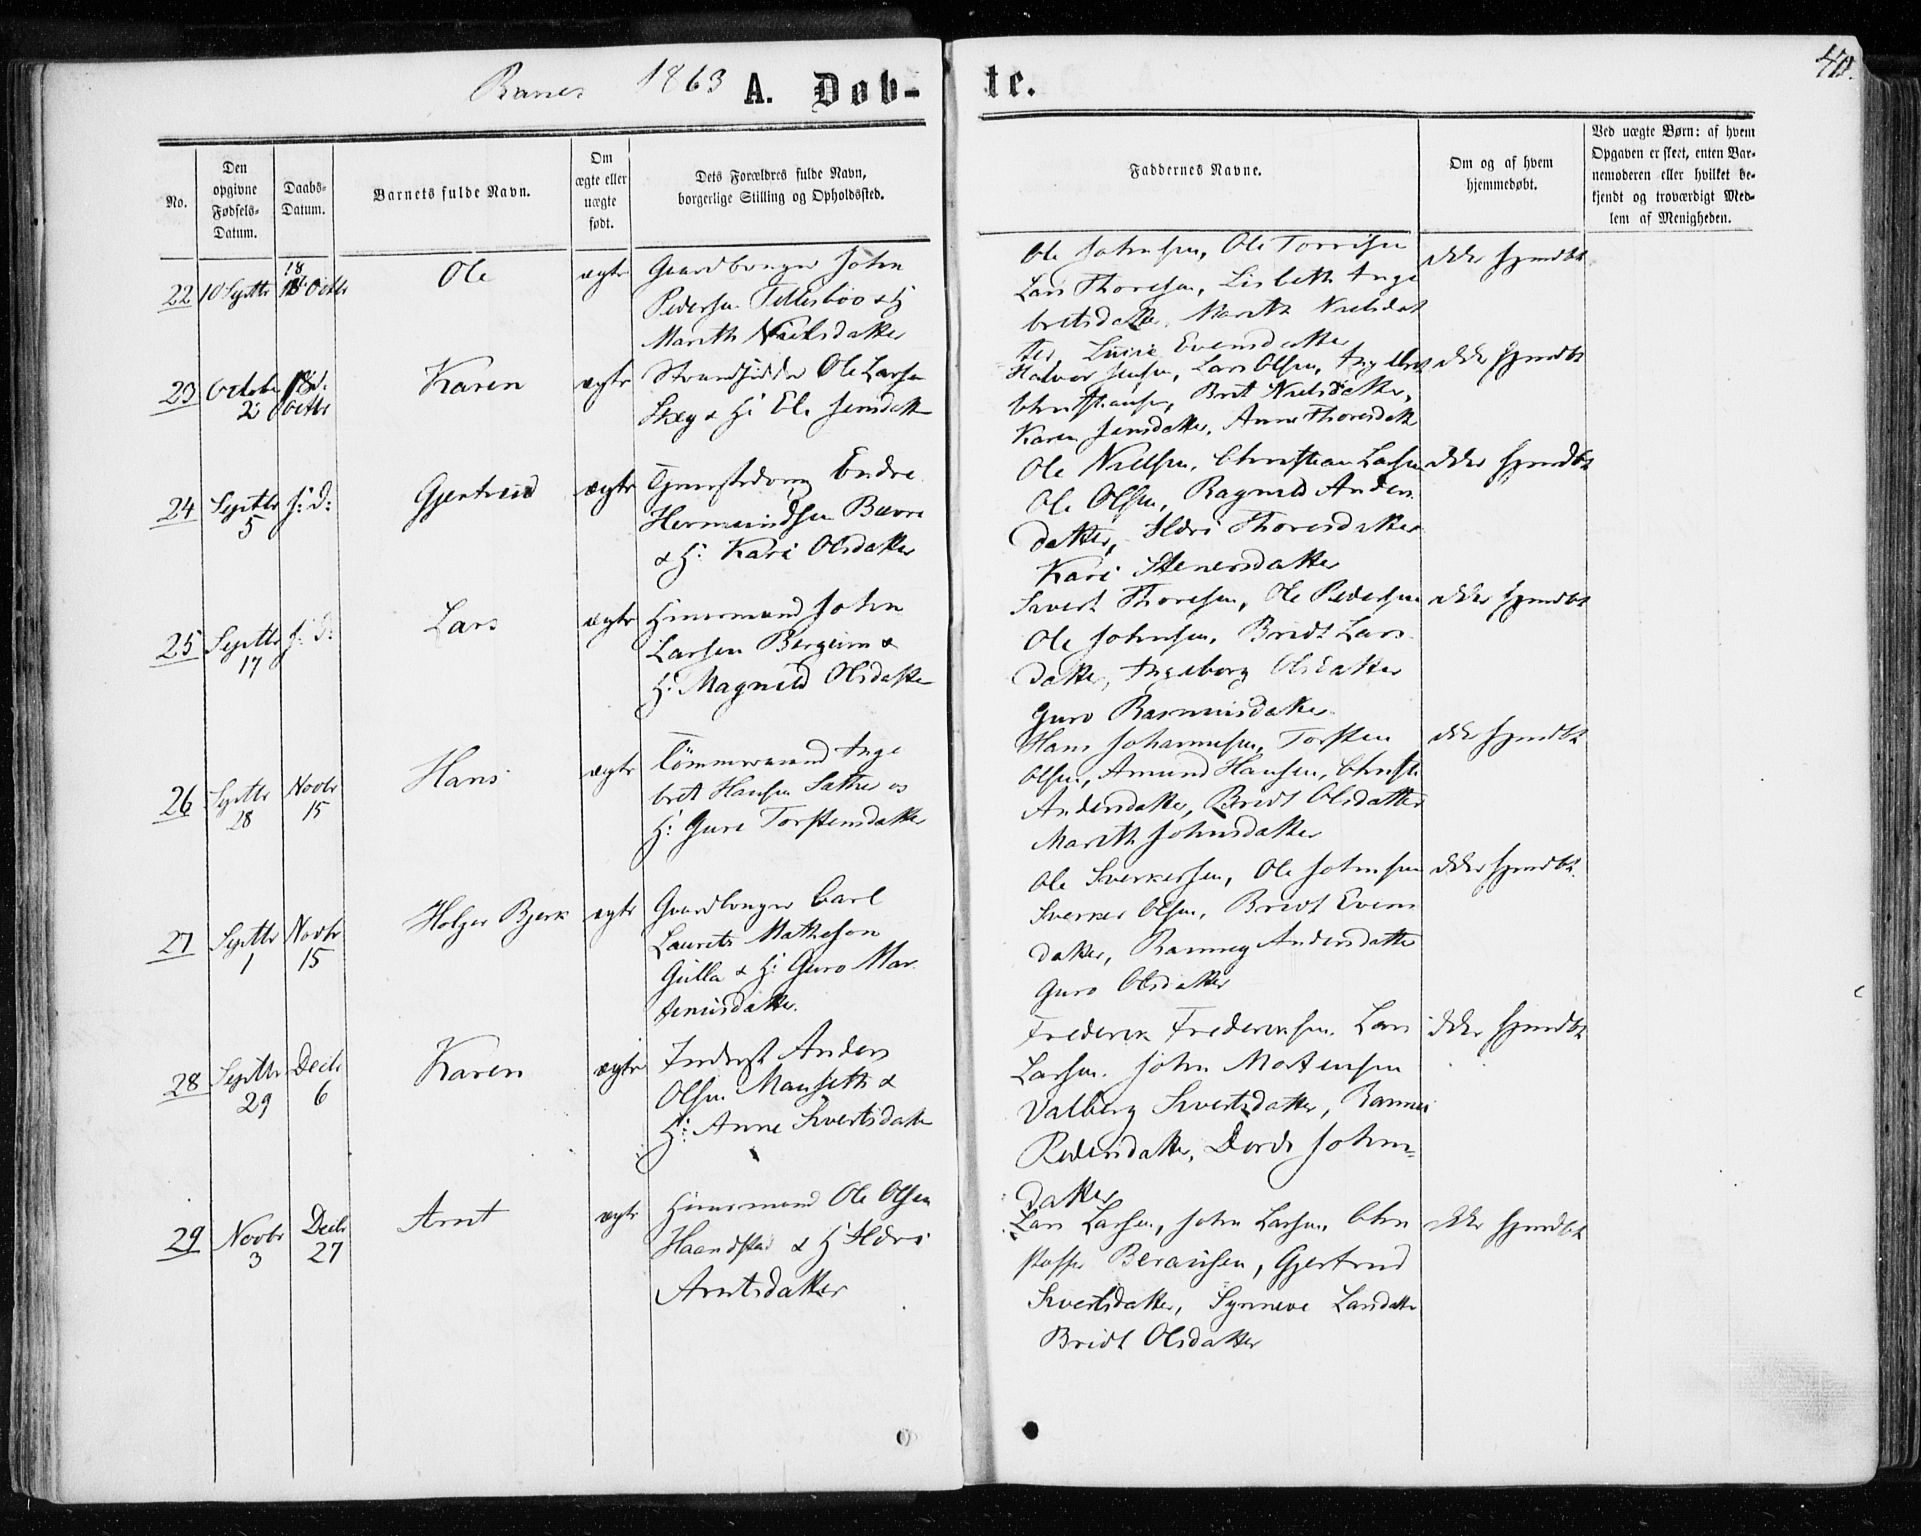 1863 A. Døb-
te.
40.
No.
Den
opgivne
Fødsels-
Datum.
Daabs-
Datum.
Barnets fulde Navn.
Om
ægte eller
uægte
født.
Dets Forældres fulde Navn,
borgerlige Stilling og Opholdssted.
Faddernes Navne.
Om og af hvem
hjemmedøbt.
Ved uægte Børn: af hvem
Opgaven er skeet, enten Bar-
nemoderen eller hvilket be-
kjendt og troværdigt Med-
lem af Menigheden.
22 10 Septbr 18 Octbr
Ole
ægte
Gaardbruger John
Pedersen Tellesboe & H
Mareth Nielsdatter
Ole Johnsen, Ole Torrisen
Lars Thoresen, Lisbeth Inge
bretsdatter, Mareth Nielsdat
ter, Evensdatter
ikke hjmdbt
23 October
2
Octbr
Karen
ægte
Strandsidder Ole Larsen
Skey & H: Ele Jensdatter
Halvor Jensen, Lars Olsen, Ingebret
Christiansen, Brit Nielsdatter,
Karen Jensdatter, Anne Thoresdatt
ikke hjmdbt
24 Septbr
5
s: d:
Gjertrud
ægte
Endre
Hermundsen Bævre
& H: Kari Olsdatter
Ole Nielsen, Christian Larsen
Ole Olsen, Ragnild Anders
datter, Ildri Thoresdatter
Kari Stenersdatter
ikke hjmdbt
25 Septbr
17
s: d:
Lars
ægte
Huusmand John
Larsen Bergeim &
H: Magnild Olsdatter
Sivert Thoresen, Ole Pedersen
Ole Johnsen, Bridt Lars
datter, Ingeborg Olsdatter
Guro Rasmusdatter
ikke hjmdbt
26 Septbr
28
Novbr
15
Hans
ægte
Tømmermand Inge
bret Hansen Sæther og
H: Guro Torstensdatter
Hans Johannesen, Torsten
Olsen, Amund Hansen, Christi
Andersdatter, Bridt Olsdatter
Mareth Johnsdatter
ikke hjmdbt
27 Septbr
1
Novbr
15
Holger Bjerk
ægte
Gaardbruger Carl
Laurits Matheson
Gulla & H: Guro Mar
tinusdatter.
Ole Sverkersen, Ole Johnsen
Sverker Olsen, Bridt Evens
datter, Ranney Andersdatter
Guro Olsdatter
ikke hjmdbt.
28 Septbr
29
Decbr
6
Karen
ægte
Inderst Anders
Olsen Mauseth &
H: Anne Sivertsdatter
Frederik Frederiksen, Lars
Larsen, John Mortensen
Valborg Sivertsdatter, Rannei
Pedersdatter, Dordi Johns-
datter
ikke hjmdbt
29 Novbr
3
Decbr
27
Arnt
ægte
Huusmand Ole Olsen
Haandstad & H: Ildri
Arntsdatter
Lars Larsen, John Larsen, Chri
stoffer Beraisen, Gjertrud
Sivertsdatter, Synneve Larsdatter
Bridt Olsdatter
ikke hjmdbt